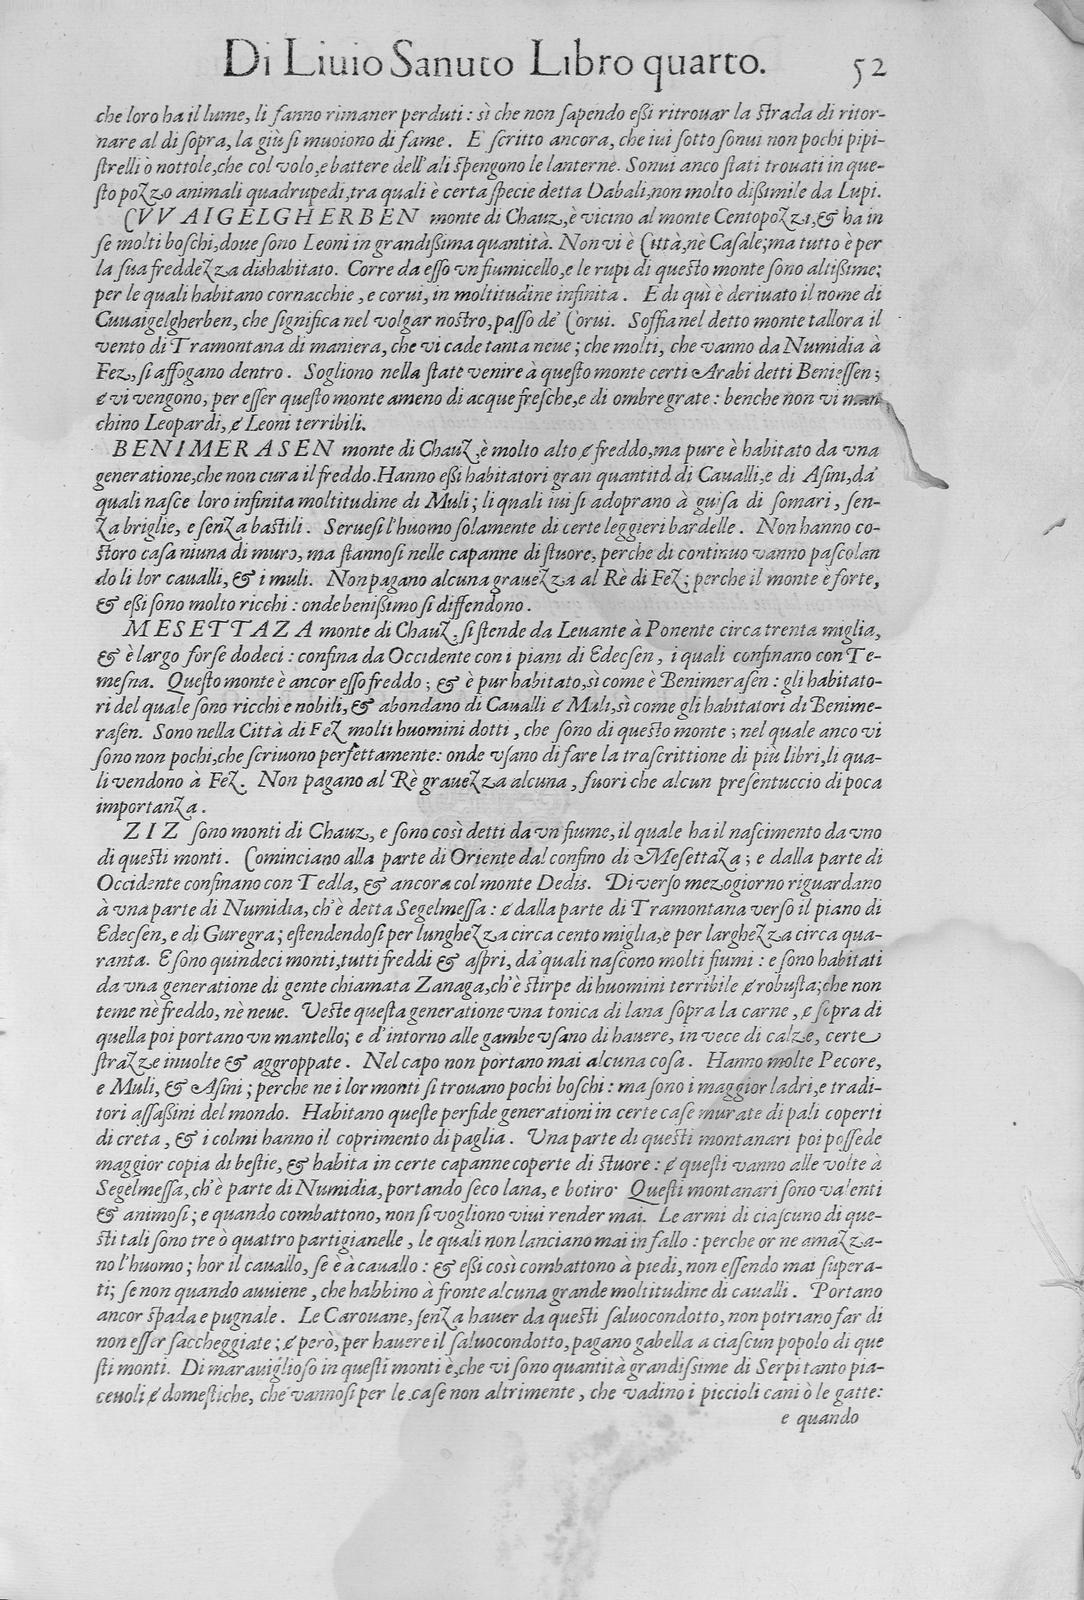 Di Liuio Sanuto Libro quarto. 52
che loro ha il lume, li fanno rimaner perduti: sì che non sapendo eßi ritrouar la strada di ritor-
nare al di sopra, la giù si muoiono di fame. E scritto ancora, che iui sotto sonui non pochi pipi-
strelli ò nottole, che col volo, e battere dell'ali spengono le lanterne. Sonui anco stati trouati in que-
sto pozzo animali quadrupedi, tra quali è certa specie detta Dabali, non molto dißimile da Lupi.
CVV AIGELGHERBEN monte di Chauz, è vicino al monte Centopozzi, & ha in
se molti boschi, doue sono Leoni in grandißima quantità. Non vi è Città, nè Casale; ma tutto è per
la sua freddezza dishabitato. Corre da esso vn fiumicello, e le rupi di questo monte sono altißime;
per le quali habitano cornacchie, e corui, in moltitudine infinita. E di quì è deriuato il nome di
Cuuaigelgherben, che significa nel volgar nostro, passo de' Corui. Soffia nel detto monte tallora il
vento di Tramontana di maniera, che vi cade tanta neue; che molti, che vanno da Numidia à
Fez, si affogano dentro. Sogliono nella state venire à questo monte certi Arabi detti Beniessen;
& vi vengono, per esser questo monte ameno di acque fresche, e di ombre grate: benche non vi man
chino Leopardi, & Leoni terribili.
BENIMERASEN monte di Chauz, è molto alto & freddo, ma pure è habitato da vna
generatione, che non cura il freddo. Hanno eßi habitatori gran quantità di Caualli, e di Asini, da'
quali nasce loro infinita moltitudine di Muli; li quali iui si adoprano à guisa di somari, sen-
za briglie, e senza bastili. Seruesi l'huomo solamente di certe leggieri bardelle. Non hanno co-
storo casa niuna di muro, ma stannosi nelle capanne di stuore, perche di continuo vanno pascolan
do li lor caualli, & i muli. Non pagano alcuna grauezza al Rè di Fez; perche il monte e forte,
& eßi sono molto ricchi: onde benißimo si diffendono.
MESETTAZA monte di Chauz, si stende da Leuante à Ponente circa trenta miglia,
& è largo forse dodeci: confina da Occidente con i piani di Edecsen, i quali confinano con Te-
mesna. Questo monte è ancor esso freddo; & è pur habitato, sì come è Benimerasen: gli habitato-
ri del quale sono ricchi e nobili, & abondano di Caualli & Muli, sì come gli habitatori di Benime-
rasen. Sono nella Città di Fez molti huomini dotti, che sono di questo monte; nel quale anco vi
sono non pochi, che scriuono perfettamente: onde vsano di fare la trascrittione di più libri, li qua-
li vendono à Fez. Non pagano al Rè grauezza alcuna, fuori che alcun presentuccio di poca
importanza.
ZIZ sono monti di Chauz, e sono così detti da vn fiume, il quale ha il nascimento da vno
di questi monti. Cominciano alla parte di Oriente dal confino di Mesettaza; e dalla parte di
Occidente confinano con Tedla, & ancora col monte Dedis. Di verso mezogiorno riguardano
à vna parte di Numidia, ch'è detta Segelmessa: & dalla parte di Tramontana verso il piano di
Edecsen, e di Guregra; estendendosi per lunghezza circa cento miglia, e per larghezza circa qua-
ranta. E sono quindeci monti, tutti freddi & aspri, da' quali nascono molti fiumi: e sono habitati
da vna generatione di gente chiamata Zanaga, ch'è stirpe di huomini terribile & robusta; che non
teme nè freddo, nè neue. Veste questa generatione vna tonica di lana sopra la carne, & sopra di
quella poi portano vn mantello; e d'intorno alle gambe vsano di hauere, in vece di calze, certe
strazze inuolte & aggroppate. Nel capo non portano mai alcuna cosa. Hanno molte Pecore,
e Muli, & Asini; perche ne i lor monti si trouano pochi boschi: ma sono i maggior ladri, e tradi-
tori assaßini del mondo. Habitano queste perfide generationi in certe case murate di pali coperti
di creta, & i colmi hanno il coprimento di paglia. Vna parte di questi montanari poi possede
maggior copia di bestie, & habita in certe capanne coperte di stuore: & questi vanno alle volte à
Segelmessa, ch'è parte di Numidia, portando seco lana, e botiro Questi montanari sono valenti
& animosi; e quando combattono, non si vogliono viui render mai. Le armi di ciascuno di que-
sti tali sono tre ò quattro partigianelle, le quali non lanciano mai in fallo: perche or ne amazza-
no l'huomo; hor il cauallo, se è à cauallo: & eßi così combattono à piedi, non essendo mai supera-
ti; se non quando auuiene, che habbino à fronte alcuna grande moltitudine di caualli. Portano
ancor spada e pugnale. Le Carouane, senza hauer da questi saluocondotto, non potriano far di
non esser saccheggiate; & però, per hauere il saluocondotto, pagano gabella a ciascun popolo di que
sti monti. Di marauiglioso in questi monti è, che vi sono quantità grandissime di Serpi tanto pia-
ceuoli & domestiche, che vannosi per le case non altrimente, che vadino i piccioli cani ò le gatte:
e quando